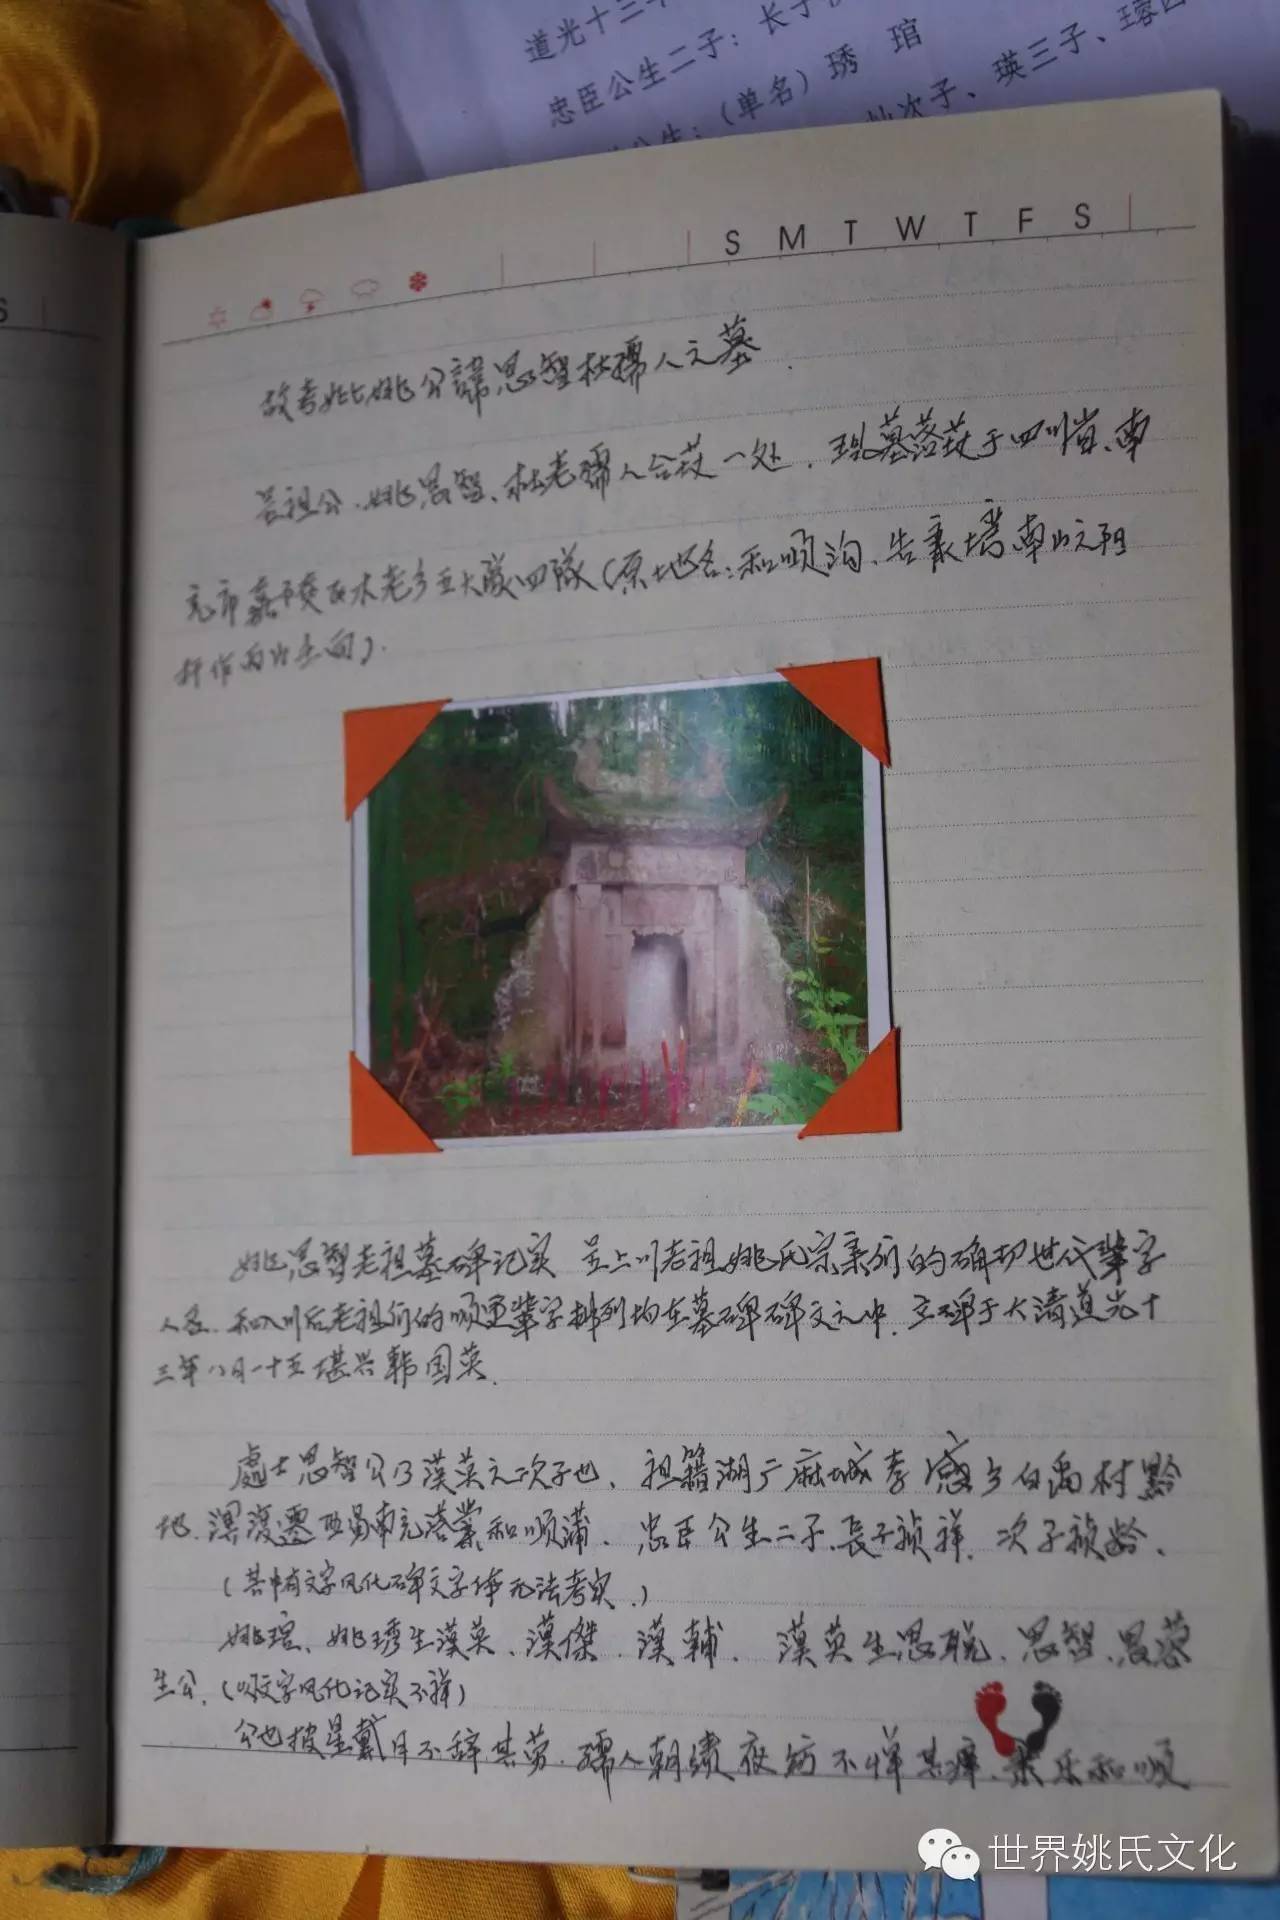 道光十三
忠臣公生二子：长子
（单名）琇 琯
次子、瑛三子、瑢四
S
S M T W T F S
故考妣姚公諱思智杜孺人之墓.
吾祖公.姚思智、杜老孺人合莹一处.现墓落茔于四川省、南
充市嘉陵区木老乡五大隊四隊(原地名:和顺沟、
).
姚思智老祖墓碑记实 呈上川老祖姚氏宗系们的确切世代辈字
人名.和入川后老祖们的顺更辈字排列均在墓碑碑文之中.立碑于大清道光十
三年八月一十五堪兴韩国英.
處士思智公乃漢英之次子也、祖籍湖广麻城孝感乡白禹村黔
地.溟渡遷西昌南充落業和顺蒲.忠臣公生二子.長子禎祥.次子禎龄.
(其中有文字风化碑文字体无法考实.)
姚琯、姚琇生漢英、漢傑.漢輔.漢英生思聪.思智、思蓉
生公.(以文字风化记实不祥)
公也披星戴月不辞其劳.孺人朝绩夜纺不惮其瘁.和顺
世界姚氏文化